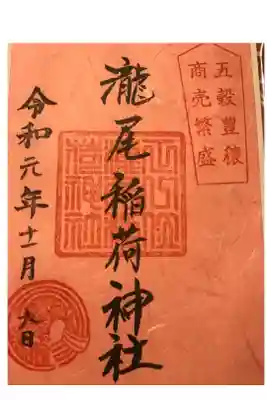 五穀豊穣
商売繁盛
瀧尾稲荷神社
令和元年十一月 九日